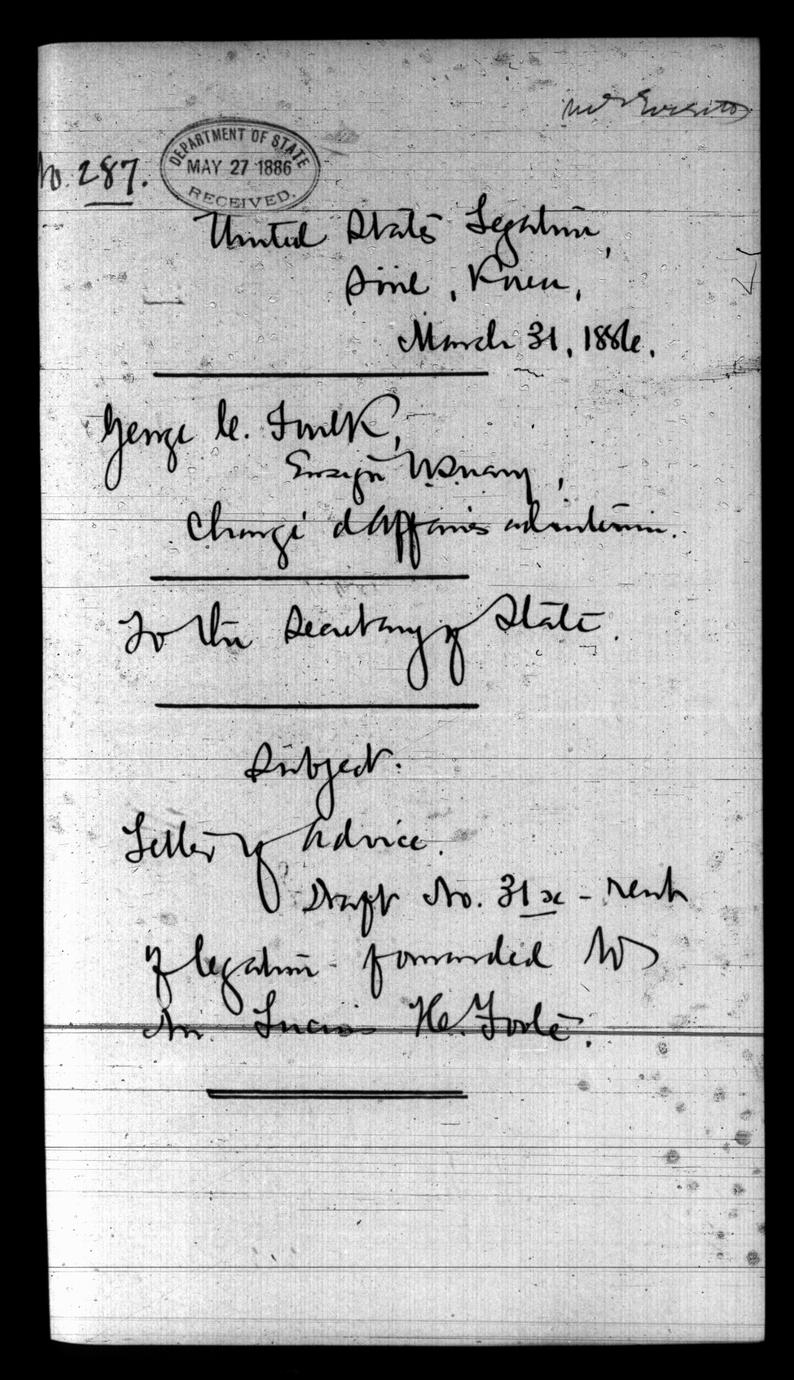 No. 287.
DEPARTMENT OF STATE
MAY 27 1886
RECEIVED.
United States Legation,
Söul, Korea,
March 31, 1886.
George C. Foulk,
Ensign U.S. Navy,
Chargé d'Affaires ad interim.
To the Secretary of State.
Subject.
Letter of Advice.
Draft No. 31x - rent
of legation - forwarded to
Mr. Lucius H. Foote.